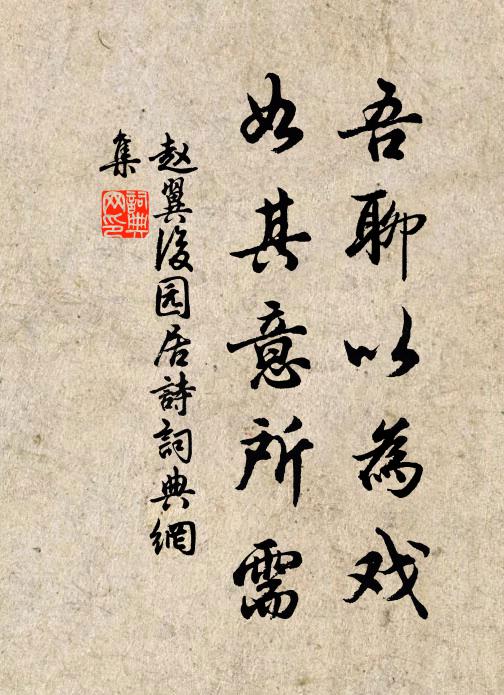 吾聊以為戏
如其意所需
赵翼後园居詩詞典網
集
詞典網印